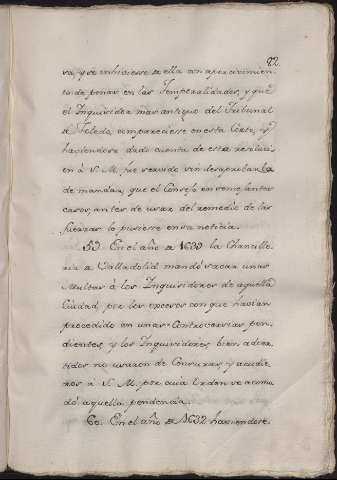 82
va, y se inhiviesse de ella con apercivimien
to de penas en las Temporalidades, y que
el Inquisidor mas antiguo del Tribunal
de Toledo, compareciesse en esta Corte, y
haviendose dado cuenta de esta resoluci
on à S. M. fue servido sin desaprobarla
de mandar, que el Consejo en semejantes
casos, antes de usar del remedio de las
fuerzas lo pusiesse en su noticia.
59. En el año de 1630 la Chancille
ria de Valladolid mandó sacar unas
Multas à los Inquisidores de aquella
Ciudad, por los excesos con que havian
procedido en unas Controversias pen
dientes, y los Inquisidores bien adver
tidos no usaron de Censuras, y acudie
ron à S. M. por cuia Orden se acomo
dó aquella pendencia.
60. En el año de 1632 haviendose